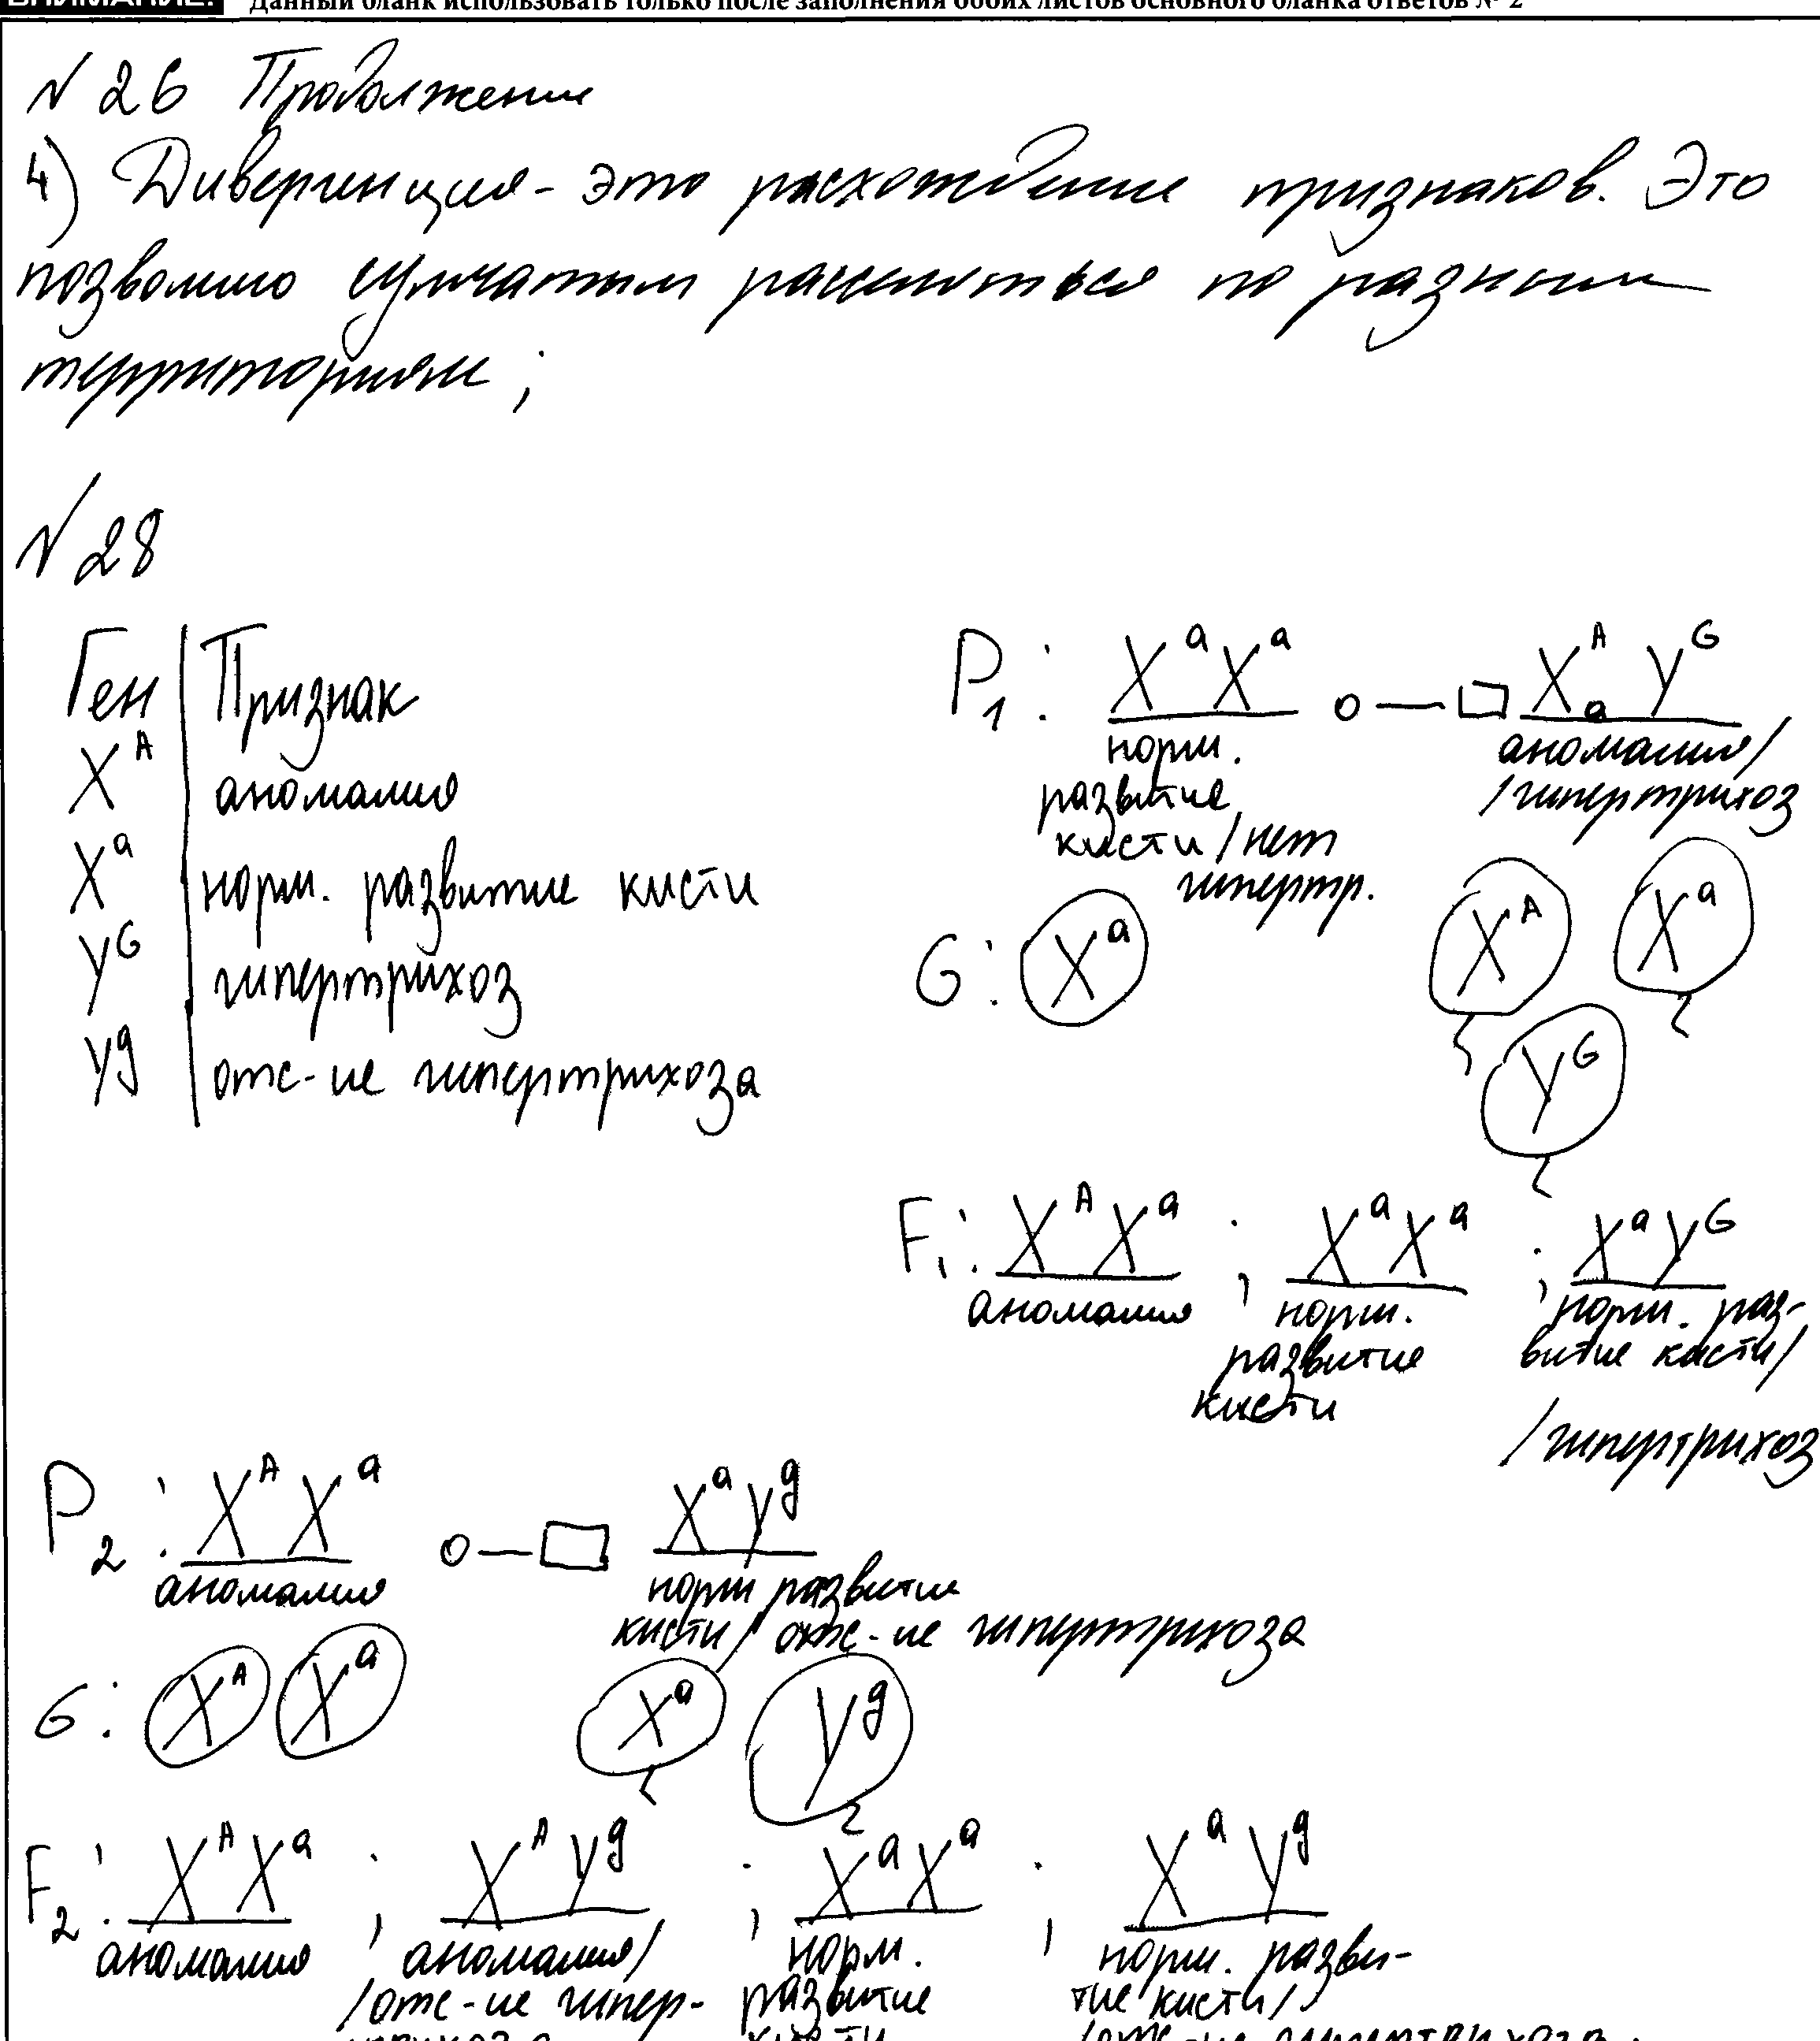 ВНИМАНИЕ! Данный бланк использовать только после заполнения обоих листов основного бланка ответов № 2
№ 26 Продолжение
4) Дивергенция - это расхождение признаков. Это
позволило сумчатым расселиться по разным
территориям ;
№ 28
Ген | Признак
X^A | аномалия
X^a | норм. развитие кисти
Y^G | гипертрихоз
Y^g | отс-ие гипертрихоза
P₁: X^a X^a о — □ X^A_a Y^G
норм. развитие кисти / нет гипертр.
аномалия / / гипертрихоз
G: X^a X^A X^a
Y^G
F₁: X^A X^a ; X^a X^a ; X^a Y^G
аномалия ; норм. развитие кисти ; норм. раз-
витие кисти /
/ гипертрихоз
P₂: X^A X^a о — □ X^a Y^g
аномалия норм развитие
кисти / отс-ие гипертрихоза
G: X^A X^a X^a Y^g
F₂: X^A X^a ; X^A Y^g ; X^a X^a ; X^a Y^g
аномалия аномалия / норм. норм. разви-
/ отс-ие гипер- развитие тие кисти /